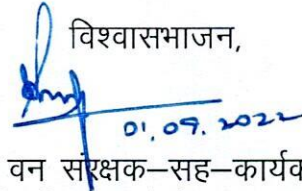 विश्वासभाजन,
01.09.2022
वन संरक्षक–सह–कार्यक